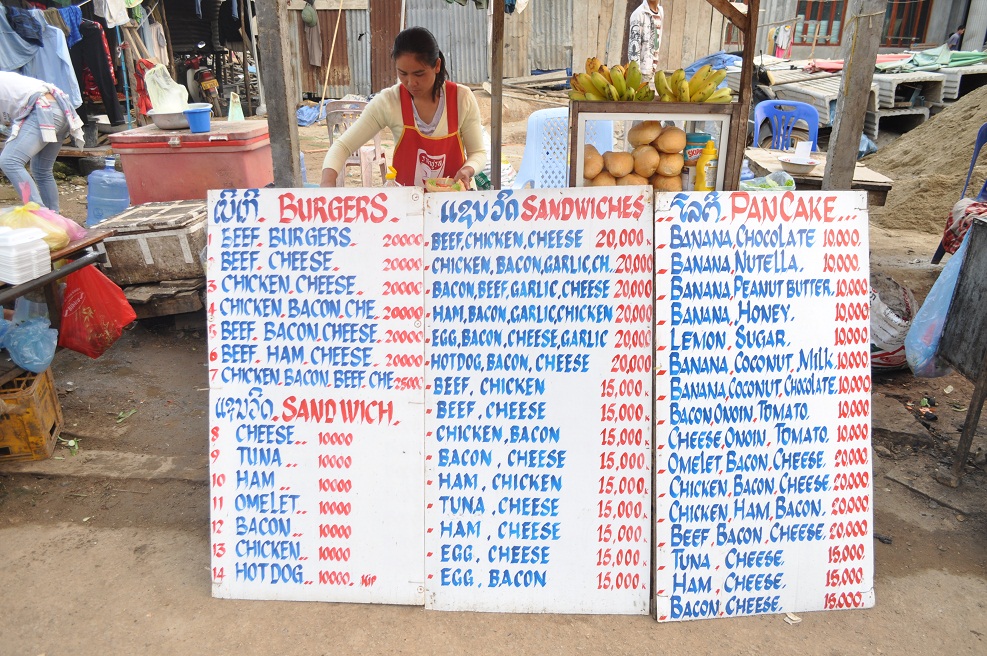 ເບີເກີ. BURGERS.
1 BEEF. BURGERS. 20000
BEEF. CHEESE. 20000
3 CHICKEN. CHEESE. 20000
4 CHICKEN. BACON. CHE.. 20000
5 BEEF. BACON. CHEESE. 20000
6 BEEF. HAM. CHEESE. 20000
7 CHICKEN. BACON. BEEF. CHE 25000
ແຊນວິດ. SANDWICH.
8 CHEESE.. 10000
9 TUNA.. 10000
10 HAM.. 10000
11 OMELET.. 10000
12 BACON.. 10000
13 CHICKEN.. 10000
14 HOTDOG.. 10000.. KIP
ແຊນວິດ SANDWICHES
BEEF, CHICKEN, CHEESE 20,000
CHICKEN, BACON, GARLIC, CH. 20,000
BACON, BEEF, GARLIC, CHEESE 20,000
HAM, BACON, GARLIC, CHICKEN 20,000
EGG, BACON, CHEESE, GARLIC 20,000
HOTDOG, BACON, CHEESE 20,000
BEEF, CHICKEN 15,000
BEEF, CHEESE 15,000
CHICKEN, BACON 15,000
BACON, CHEESE 15,000
HAM, CHICKEN 15,000
TUNA, CHEESE 15,000
HAM, CHEESE 15,000
EGG, CHEESE 15,000
EGG, BACON 15,000
ໂລຕີ. PANCAKE...
BANANA, CHOCOLATE 10,000
BANANA, NUTELLA. 10,000
BANANA, PEANUT BUTTER. 10,000
BANANA, HONEY. 10,000
LEMON, SUGAR. 10,000
BANANA, COCONUT, MILK 10,000
BANANA, COCONUT, CHOCOLATE. 10,000
BACON, ONOIN, TOMATO. 10,000
CHEESE, ONOIN, TOMATO. 10,000
OMELET, BACON, CHEESE, 20,000
CHICKEN, BACON, CHEESE, 20,000
CHICKEN, HAM, BACON. 20,000
BEEF, BACON, CHEESE, 20,000
TUNA, CHEESE, 15,000
HAM, CHEESE, 15,000
BACON, CHEESE, 15,000